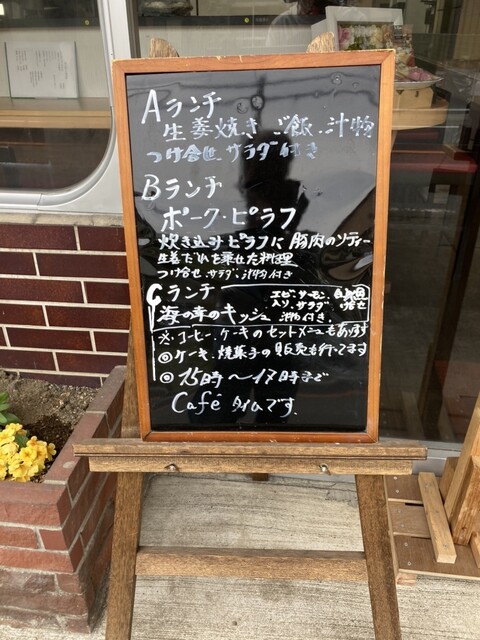 Aランチ
生姜焼き ご飯.汁物
つけ合せ サラダ付き
Bランチ
ポーク・ピラフ
炊き込みピラフに 豚肉のソテー
生姜だれを乗せた料理
つけ合せ サラダ.汁物付き
Cランチ
エビ.サーモン.
入り.サラダ.
海の幸のキッシュ 汁物付き.
※.コーヒー.ケーキのセットメニューもあります
◎ケーキ.焼菓子の販売も行ってます
◎15時〜17時まで
Café タイムです.